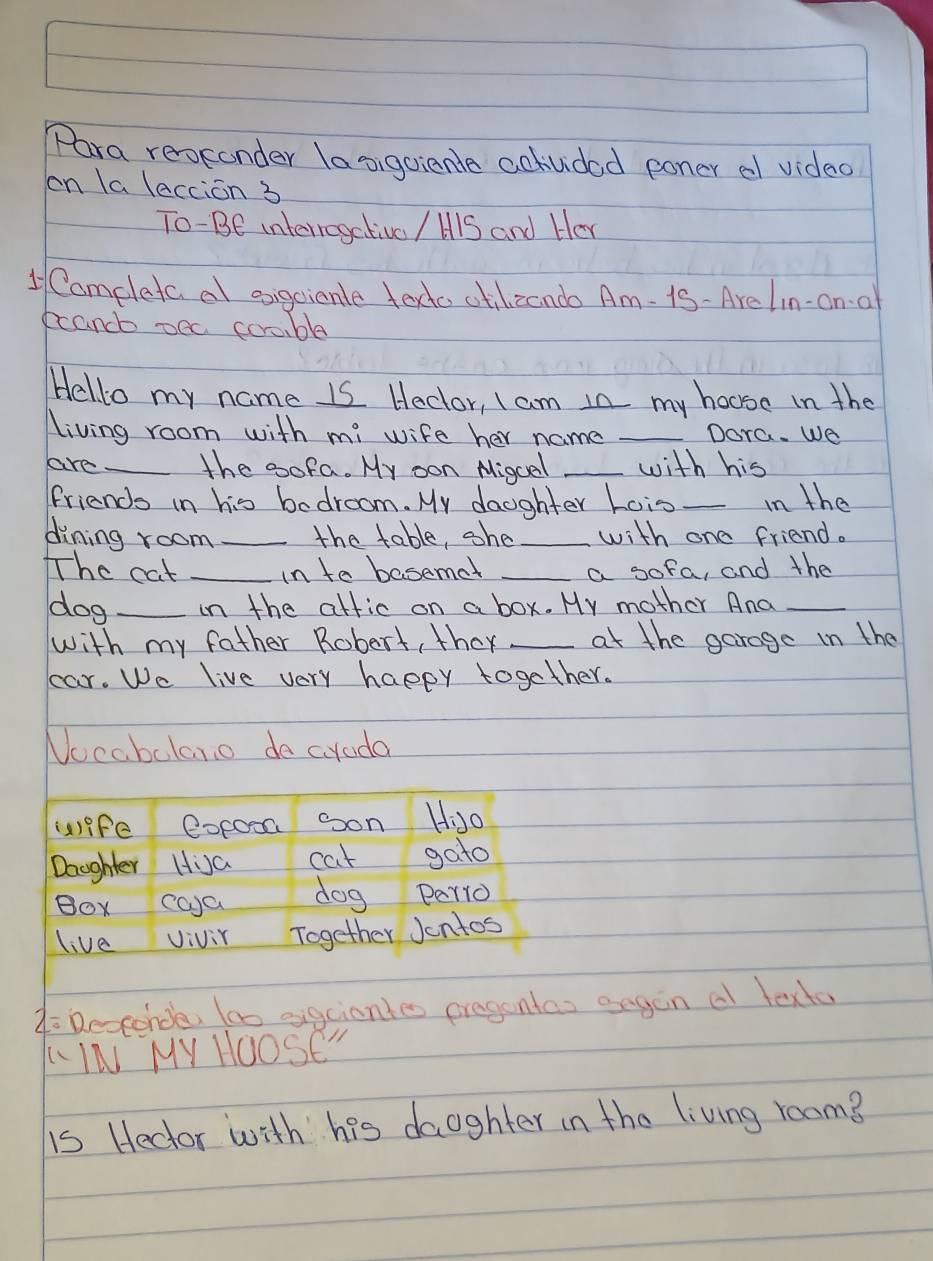 Para responder la siguiente actividad poner el video
en la lección 3
TO-BE interrogativo/HIS and Her
1- Completa el siguiente texto utilizando Am-IS-Are/in-on-at
cuando sea posible
Hello my name IS Hector, I am in my house in the
living room with mi wife her name ___ Dora. We
are ___ the sofa. My son Miguel ___ with his
friends in his bedroom. My daughter Lois ___ in the
dining room ___ the table, she ___ with one friend.
The cat ___ in te basemet ___ a sofa, and the
dog ___ in the attic on a box. My mother Ana ___
with my father Robert, they ___ at the garage in the
car. We live very happy together.
Vocabulario de ayuda
wife esposa son Hijo
Daughter Hija cat gato
Box caja dog Perro
live vivir Together Juntos
2= Responde las siguientes preguntas según el texto
"IN MY HOUSE"
IS Hector with his daughter in the living room?